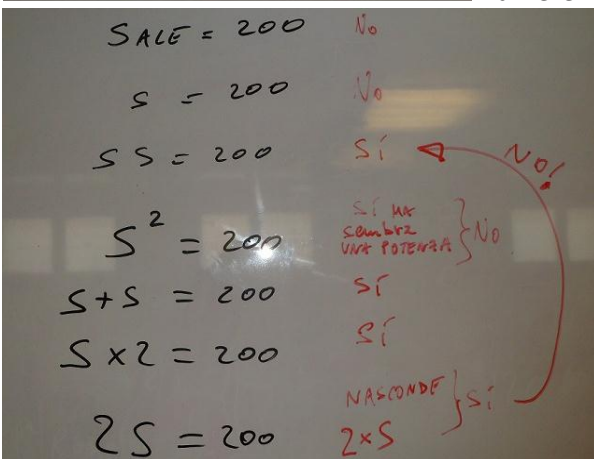 SALE = 200 No
S = 200 No
SS = 200 Sí
NO!
S² = 200 Sí MA sembra UNA POTENZA } No
S+S = 200 Sí
S x 2 = 200 Sí
2S = 200 NASCONDE 2×S } Sí